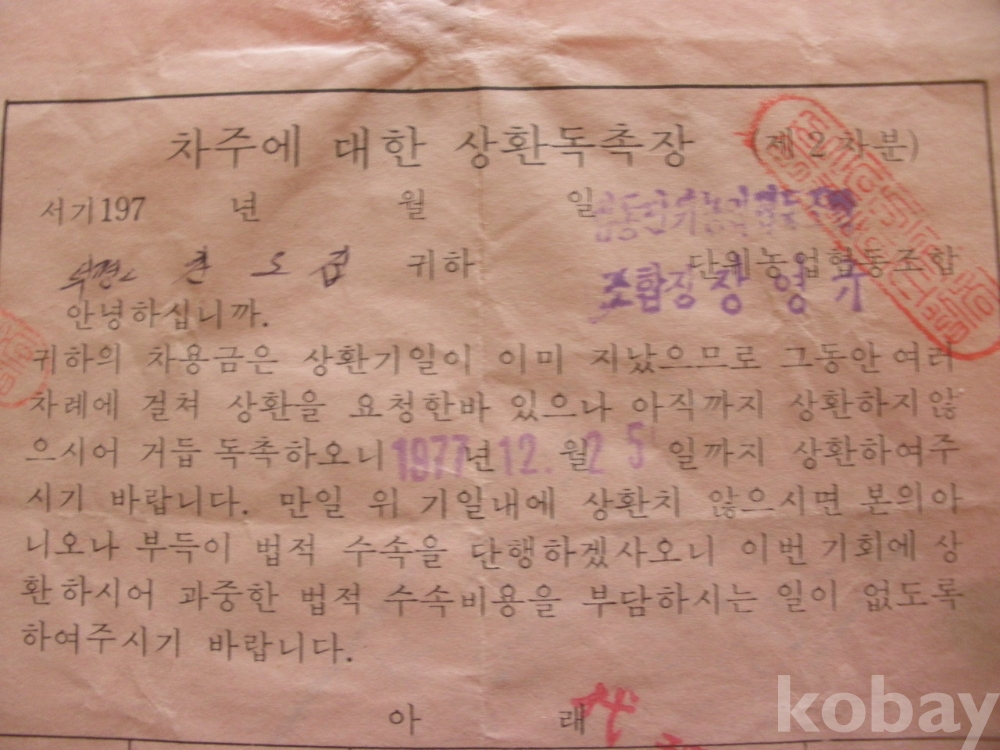 차주에 대한 상환독촉장 (제2차분)
서기197 년 월 일
귀하 단위농업협동조합
조합장 장영
안녕하십니까.
귀하의 차용금은 상환기일이 이미 지났으므로 그동안 여러
차례에 걸쳐 상환을 요청한바 있으나 아직까지 상환하지않
으시어 거듭 독촉하오니 1977년 12. 월 25 일까지 상환하여주
시기 바랍니다. 만일 위 기일내에 상환치 않으시면 본의아
니오나 부득이 법적 수속을 단행하겠사오니 이번 기회에 상
환하시어 과중한 법적 수속비용을 부담하시는 일이 없도록
하여주시기 바랍니다.
아 래
kobay